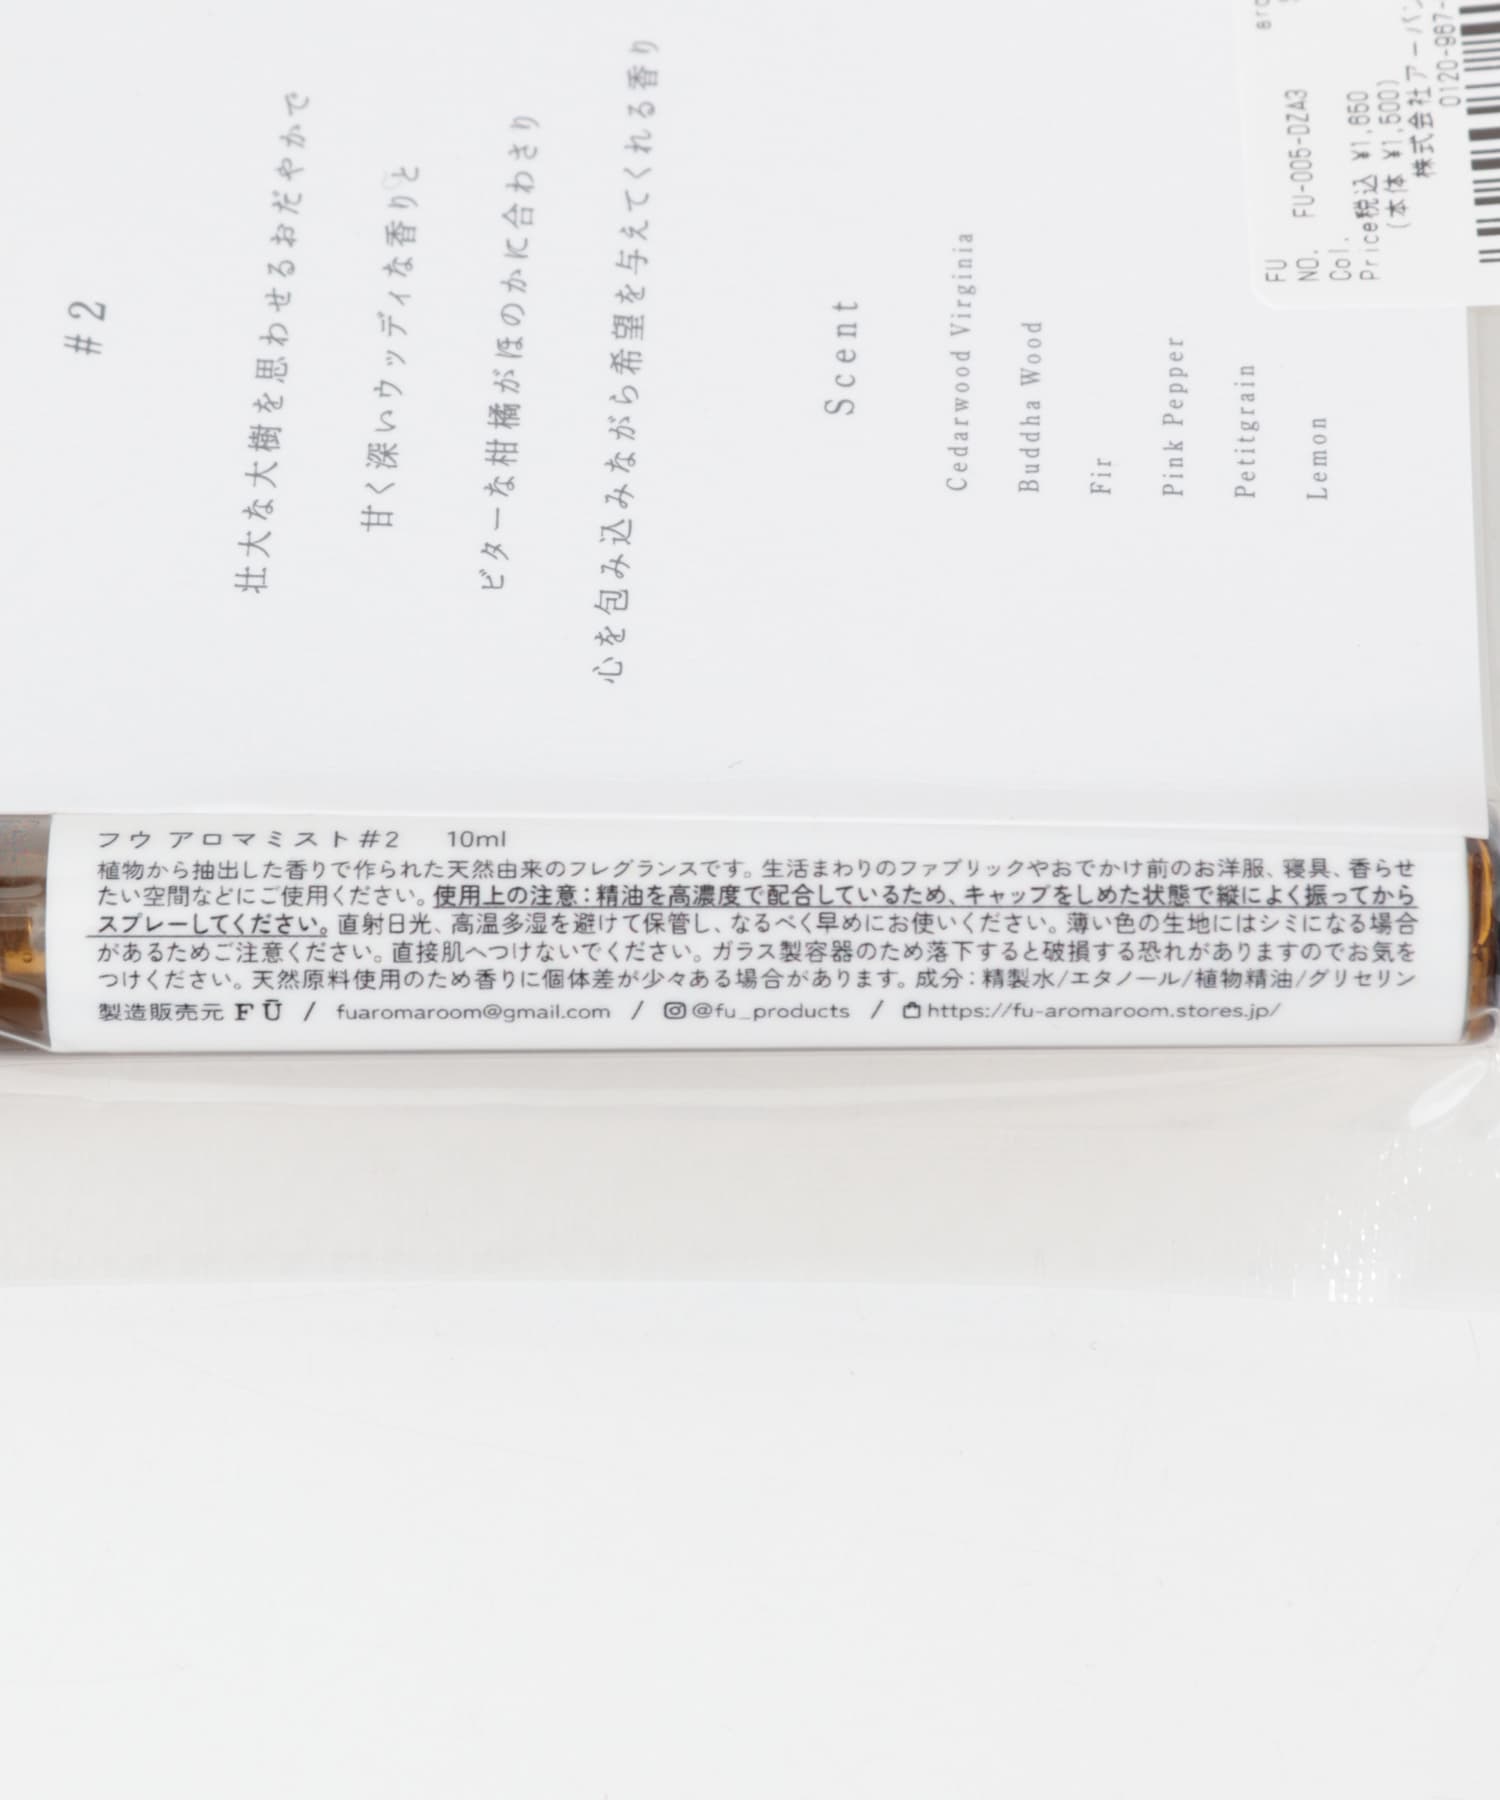 #2
壮大な大樹を思わせるおだやかで
甘く深いウッディな香りと
ビターな柑橘がほのかに合わさり
心を包み込みながら希望を与えてくれる香り
Scent
Cedarwood Virginia
Buddha Wood
Fir
Pink Pepper
Petitgrain
Lemon
FU
NO. FU-005-DZA3
Col.
Price税込 ¥1,650
(本体 ¥1,500)
株式会社アーバン
0120-967-
フウ アロマミスト#2 10ml
植物から抽出した香りで作られた天然由来のフレグランスです。生活まわりのファブリックやおでかけ前のお洋服、寝具、香らせ
たい空間などにご使用ください。使用上の注意：精油を高濃度で配合しているため、キャップをしめた状態で縦によく振ってから
スプレーしてください。直射日光、高温多湿を避けて保管し、なるべく早めにお使いください。薄い色の生地にはシミになる場合
があるためご注意ください。直接肌へつけないでください。ガラス製容器のため落下すると破損する恐れがありますのでお気を
つけください。天然原料使用のため香りに個体差が少々ある場合があります。成分：精製水/エタノール/植物精油/グリセリン
製造販売元 FŪ / fuaromaroom@gmail.com / @fu_products / https://fu-aromaroom.stores.jp/